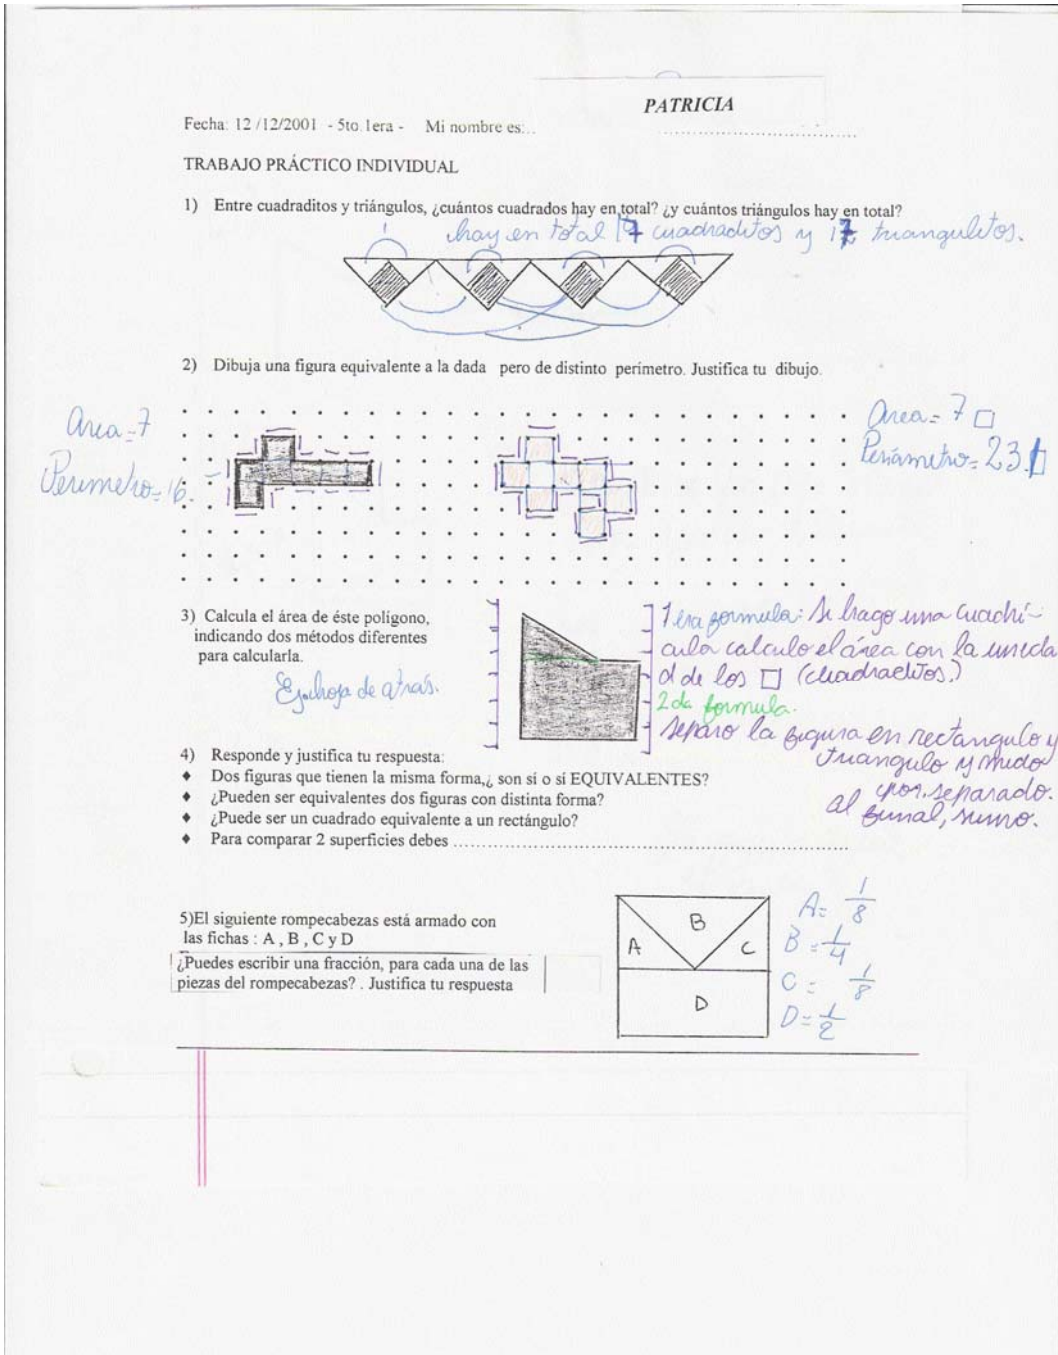 PATRICIA
Fecha: 12 /12/2001 - 5to.1era - Mi nombre es:..
TRABAJO PRÁCTICO INDIVIDUAL
1) Entre cuadraditos y triángulos, ¿cuántos cuadrados hay en total? ¿y cuántos triángulos hay en total?
hay en total cuadraditos y triangulitos.
2) Dibuja una figura equivalente a la dada pero de distinto perímetro. Justifica tu dibujo.
Area=7
Perímetro=16.
Area= 7 □
Periámetro= 23.
3) Calcula el área de éste polígono,
indicando dos métodos diferentes
para calcularla.
Ej. hoja de atrás.
1era formula: Si hago una cuadrí-
cula calculo el área con la unida
d de los □ (cuadraditos.)
2da formula.
Separo la figura en rectangulo y
triangulo y mido
por separado.
al final, sumo.
4) Responde y justifica tu respuesta:
♦ Dos figuras que tienen la misma forma,¿ son sí o sí EQUIVALENTES?
♦ ¿Pueden ser equivalentes dos figuras con distinta forma?
♦ ¿Puede ser un cuadrado equivalente a un rectángulo?
♦ Para comparar 2 superficies debes ...............................................................
5)El siguiente rompecabezas está armado con
las fichas : A , B , C y D
¿Puedes escribir una fracción, para cada una de las
piezas del rompecabezas? . Justifica tu respuesta
B
A C
D
A= 1/8
B = 1/4
C = 1/8
D = 1/2